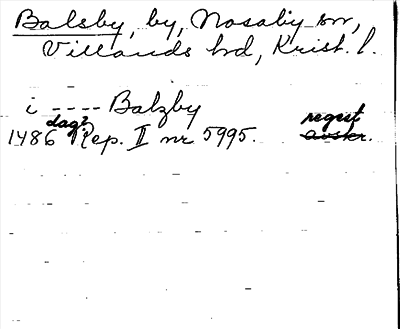 Balsby, by, Nosaby sn,
Villands hd, Krist. l.
i ---- Balzby
dagb regest
1486 Rep. II nr 5995. avskr.